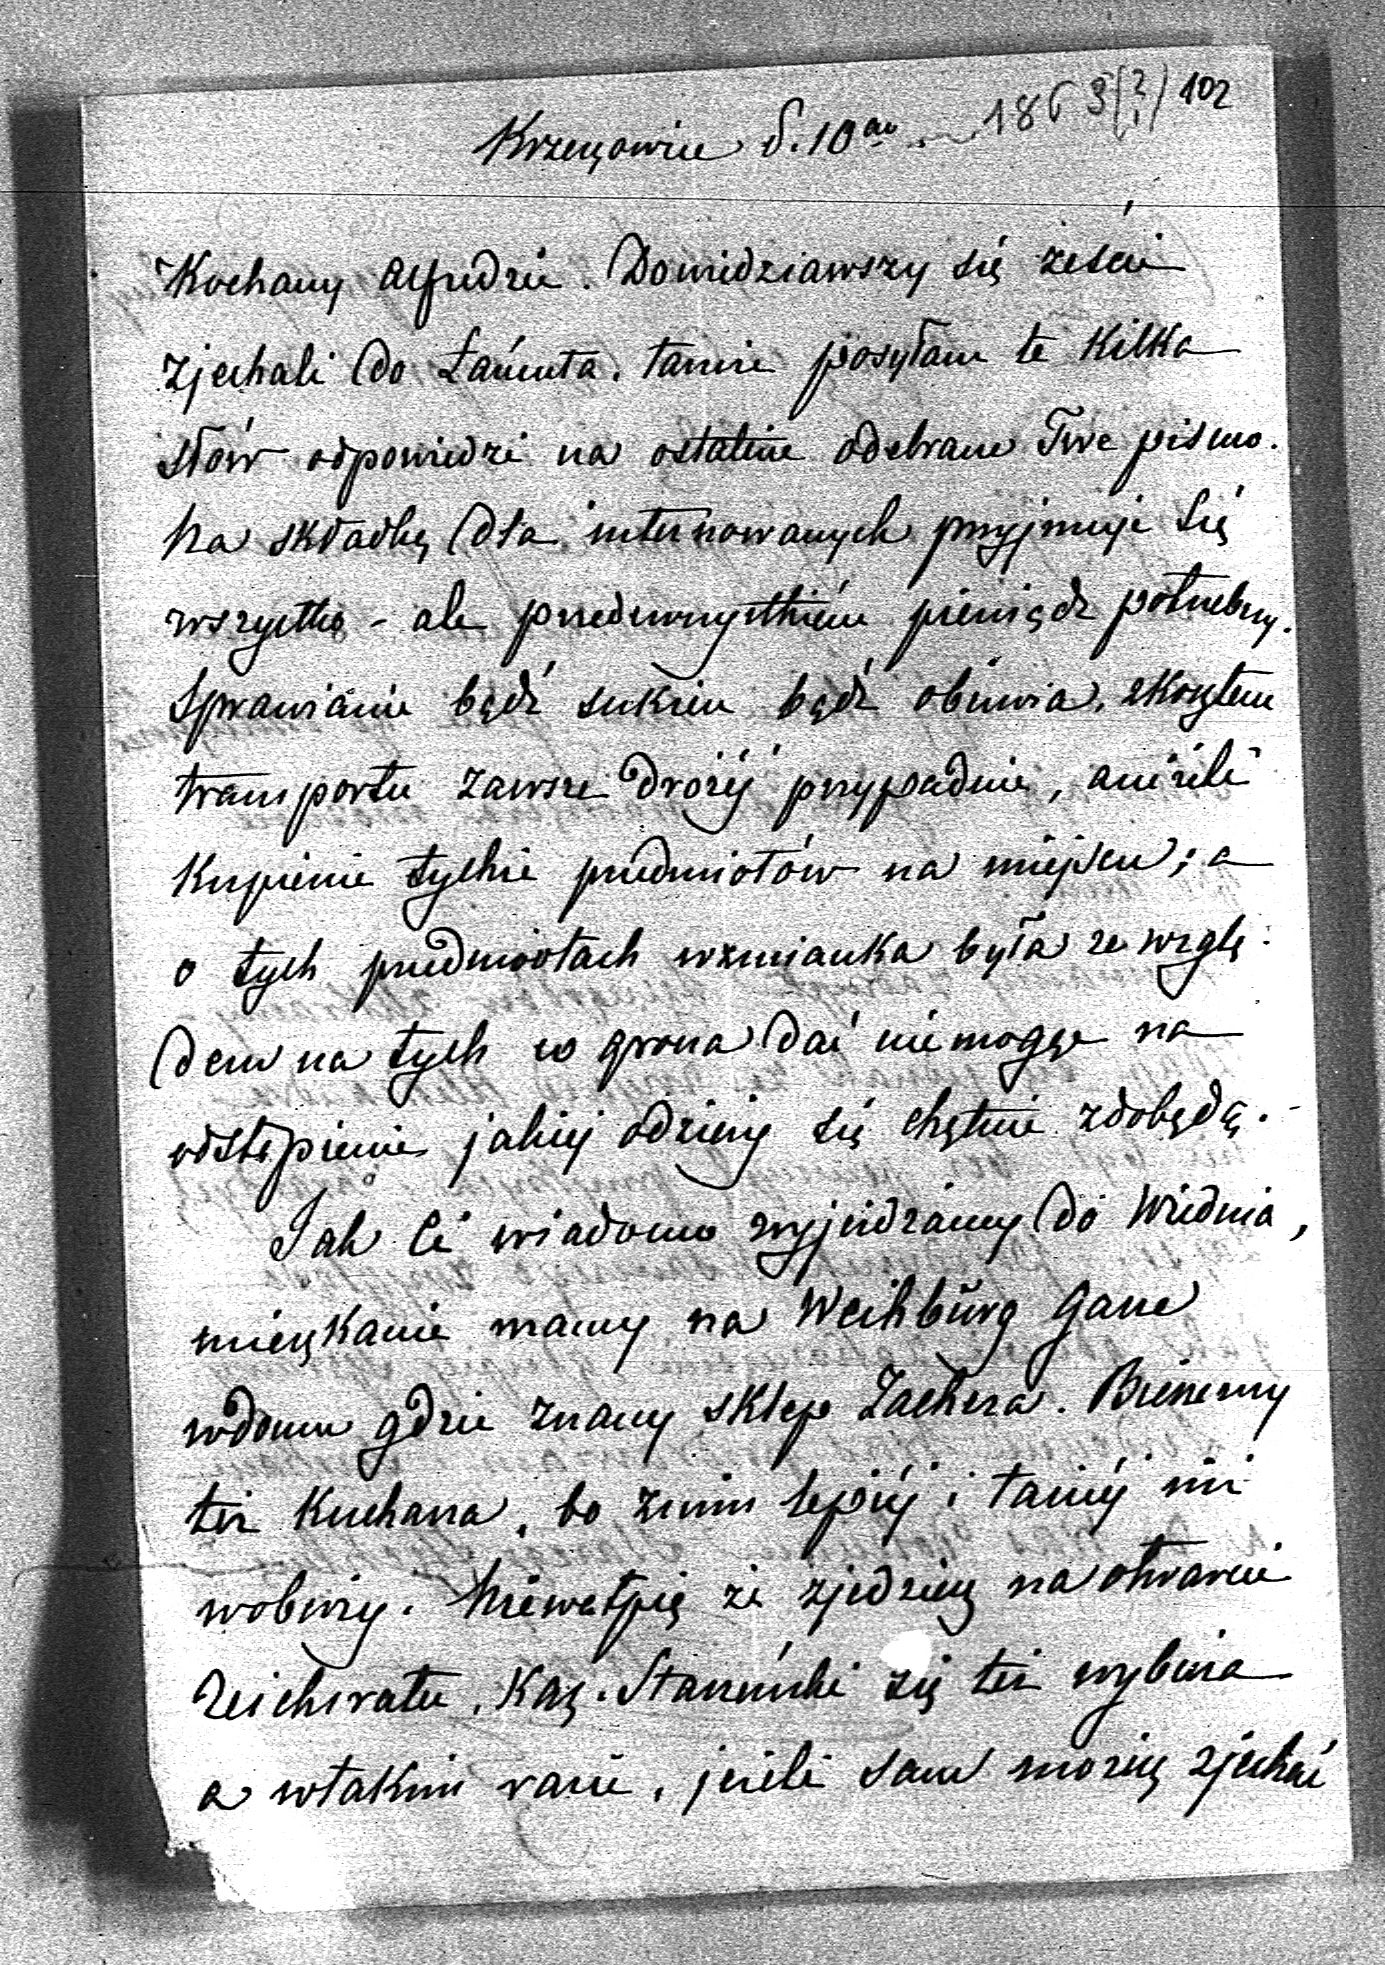 Krzeszowice d. 10go 1863(?) 102
Kochany Alfredzie. Dowiedziawszy się żeście
zjechali do Łańcuta, tamże posyłam te kilka
słów odpowiedzi na ostatnie odebrane Twe pismo.
Na składkę dla internowanych przyjmuje się
wszystko - ale przedewszystkiém pieniądz potrzebny.
Sprawianie bądź sukien bądź obuwia, z kosztem
transportu zawsze drożéj przypadnie, aniżeli
kupienie tychże przedmiotów na miejscu; a
o tych przedmiotach wzmianka była ze wzglę-
dem na tych co grosza dać niemogąc na
odstąpienie jakiéj odzieży się chętnie zdobędą.-
Jak Ci wiadomo wyjeżdżamy do Wiednia,
mieszkanie mamy na Weihbŭrg Gasse
wdomu gdzie znany sklep Zachera. Bierzemy
też kucharza, bo znim lepiéj i taniéj niż
woberży. Niewątpię że zjedziesz na otwarcie
Reichsratu, Kaź. Starzeński się też wybiera
a wtakim razie, jeżeli sam możesz zjechać